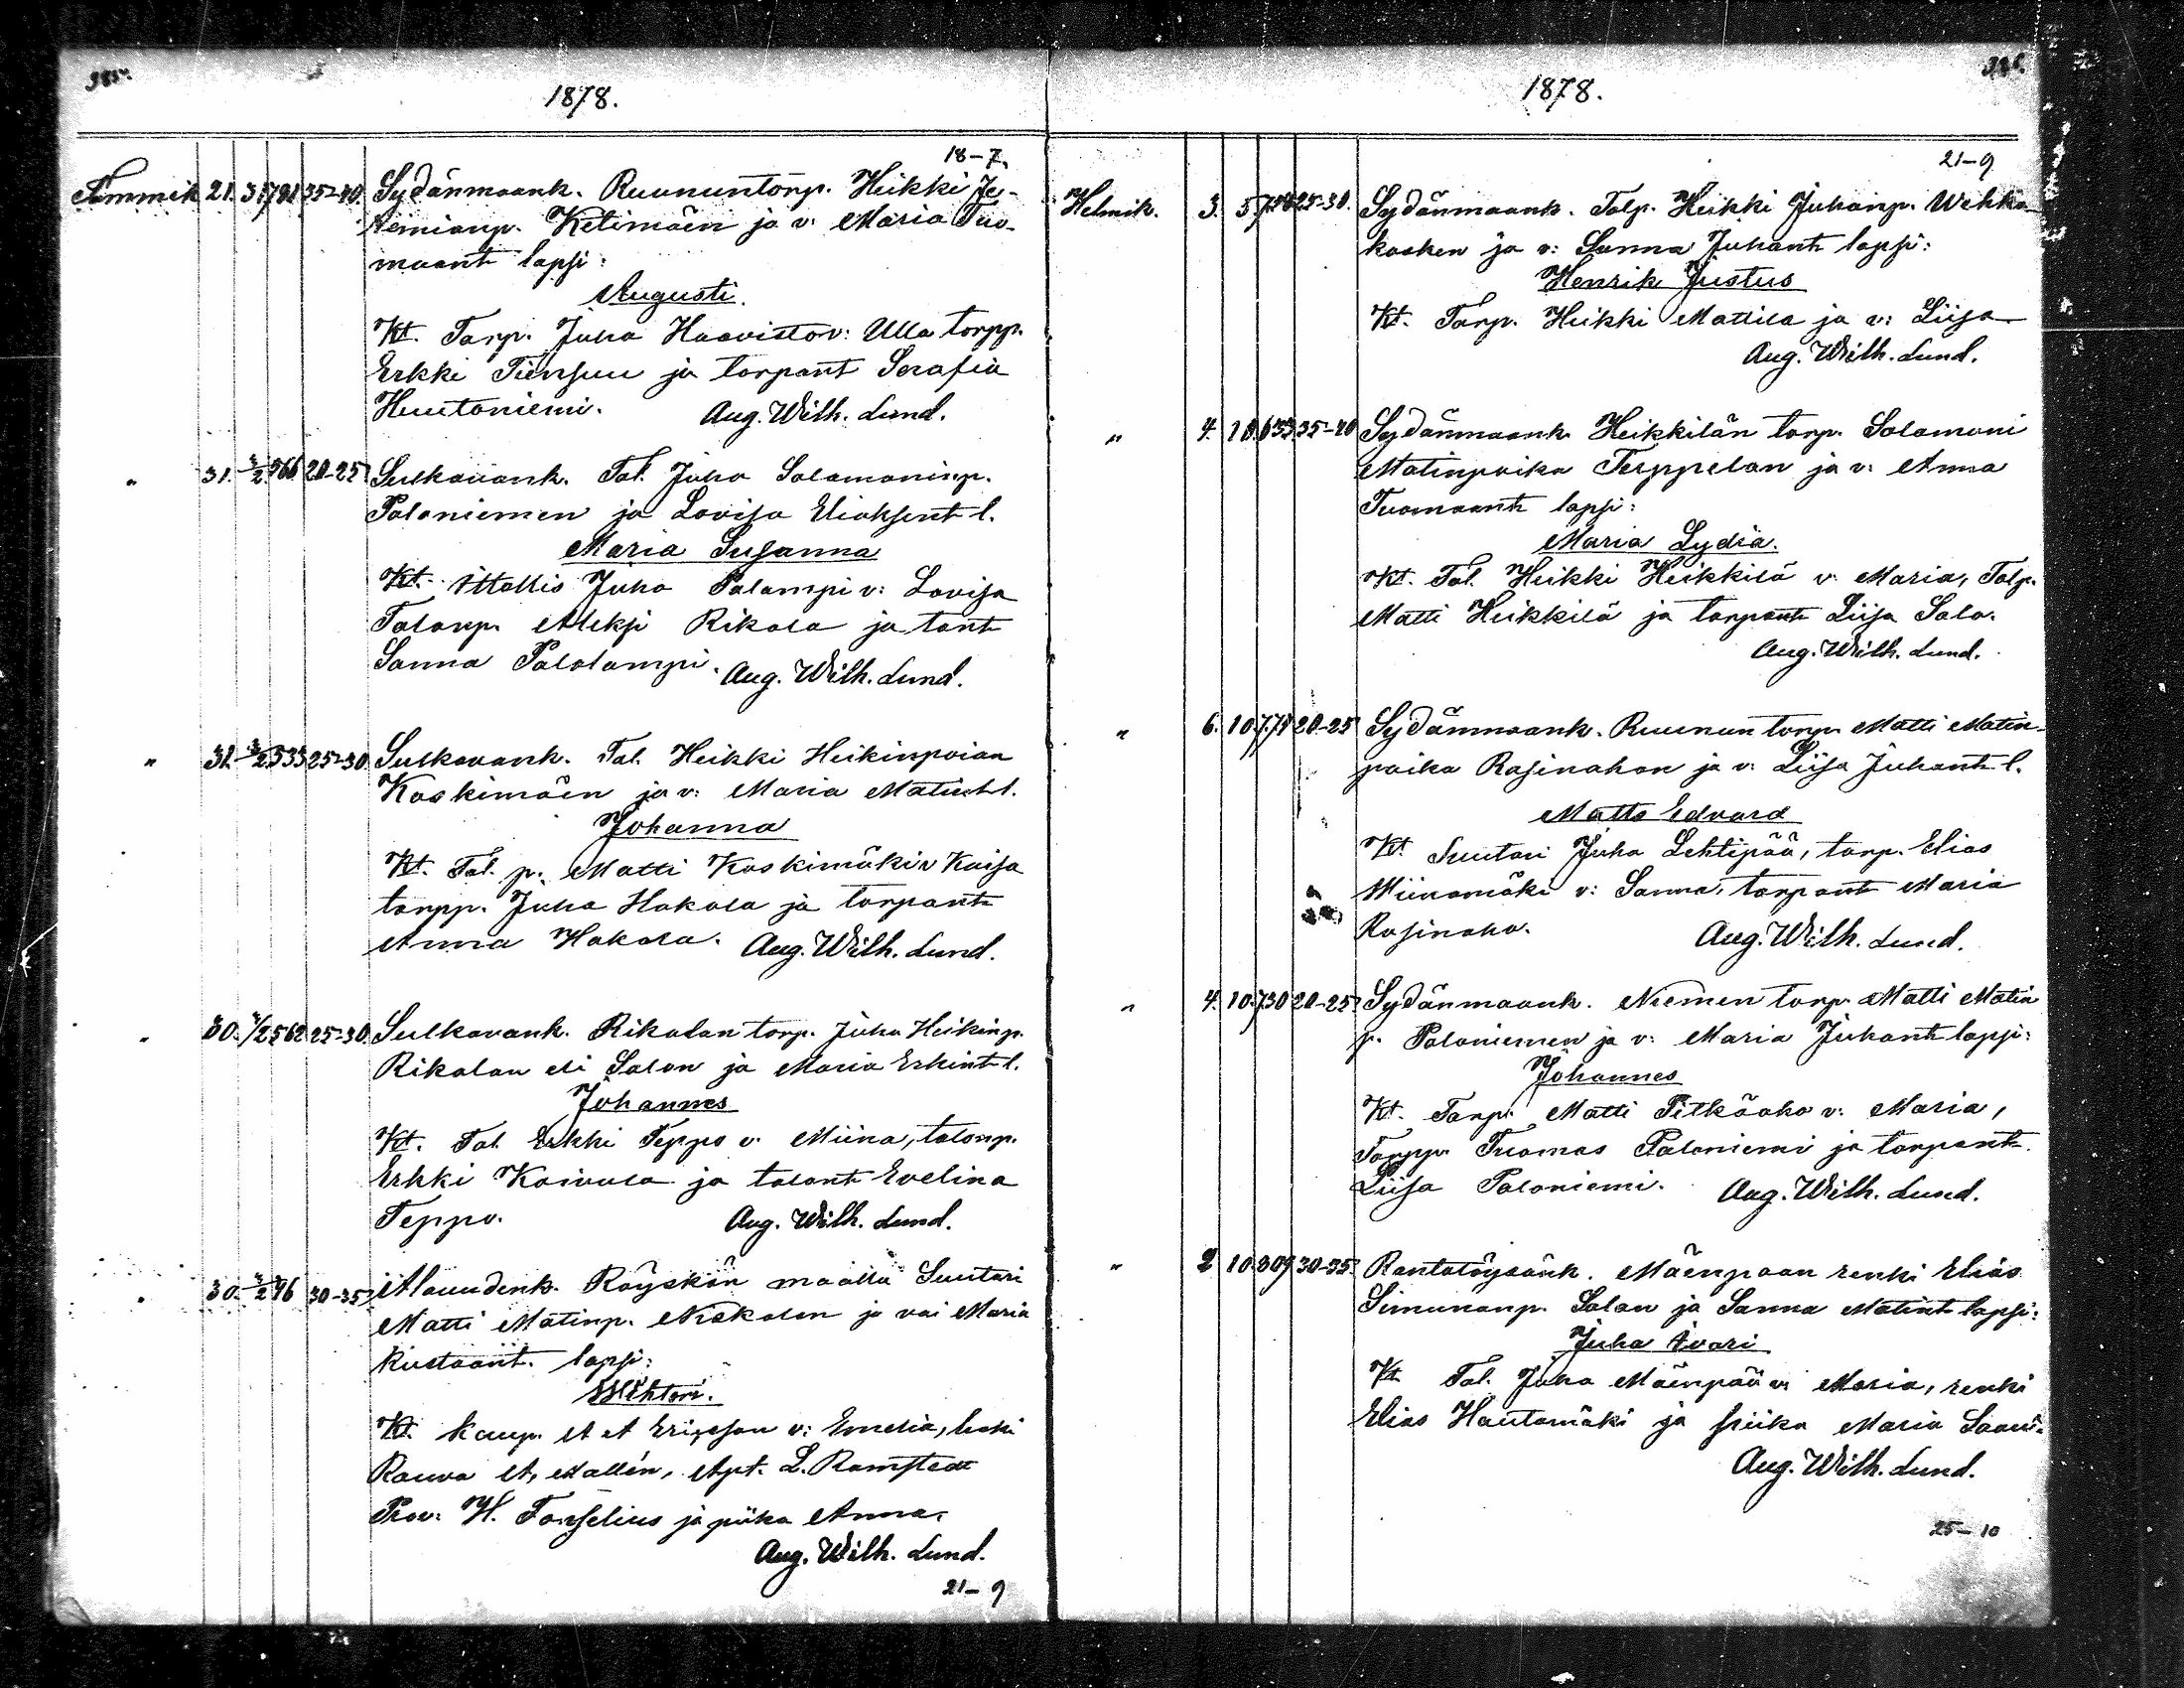 385.
1878.
18-7.
Tammik 21. 31 781 35-40. Sydänmaank. Ruununtorp. Heikki Je-
remianp. Ketimäen ja v: Maria Tuo-
maant lapsi:
Augusti.
Kt. Torp. Juha Haavisto v: Ulla torpp.
Erkki Tiensuu ja torpant Serafia
Huutoniemi. Aug. Wilh. Lund.
" 31. 3/2 566 20-25 Sulkavank. Tal. Juho Salamoninp.
Paloniemen ja Lovisa Eliaksent l.
Maria Susanna
Kt. Ittellis Juho Palampi v: Lovisa
Talonp. Aleksi Rikala ja tant
Sanna Palolampi. Aug. Wilh. Lund.
" 31. 3/2 535 25-30. Sulkavank. Tal. Heikki Heikinpoian
Koskimäen ja v: Maria Matint l.
Johanna
Kt. Tal. p. Matti Koskimäki v Kaisa
torpp. Juha Hakala ja torpant
Anna Hakala. Aug. Wilh. Lund.
" 30. 3/2 562 25-30. Sulkavank. Rikalan torp. Juha Heikinp.
Rikalan eli Salon ja Maria Erkint l.
Johannes
Kt. Tal. Erkki Teppo v: Miina, talonp.
Erkki Koivula ja talont Evelina
Teppo. Aug. Wilh. Lund.
" 30. 3/2 96 30-35 Alauudenk. Röyskön maalla Suutari
Matti Matinp. Niskalan ja vai Maria
Kustaant. lapsi:
Wihtori.
Kt. Kaup. A A Ericsson v: Emelia,
Rouva A, Mallén, Apt. L. Ramstedt
Prov: H. Forselius ja piika Anna.
Aug. Wilh. Lund.
21-9
1878.
21-9
Helmik. 3. 5 25-30. Sydänmaank. Talp. Heikki Juhanp. Wehka-
kosken ja v: Sanna Juhant lapsi:
Henrik Justus
Kt. Torp. Heikki Mattila ja v: Liisa
Aug. Wilh. Lund.
" 4. 10 653 35-40 Sydänmaank Heikkilän torp. Salomoni
Matinpoika Teppelan ja v: Anna
Tuomaant lapsi:
Maria Lydia.
Kt. Tal. Heikki Heikkilä v: Maria, Talp.
Matti Heikkilä ja torpant Liisa Salo.
Aug. Wilh. Lund.
" 6. 10 771 20-25 Sydänmaank. Ruunun torp. Matti Matin-
poika Rasinahon ja v: Liisa Juhant l.
Matts Edvard
Kt. Suutari Juha Lehtipää, torp. Elias
Wiinamäki v: Sanna, torpant Maria
Rasinaho. Aug. Wilh. Lund.
" 4. 10 730 20-25 Sydänmaank. Niemen torp. Matti Matin
p. Paloniemen ja v: Maria Juhant lapsi:
Johannes
Kt. Torp. Matti Pitkäaho v: Maria,
Torpp. Tuomas Paloniemi ja torpant
Liisa Paloniemi. Aug. Wilh. Lund.
" 2 10 309 30-35. Rantatöysänk. Mäenpaan renki Elias
Simunanp. Salan ja Sanna Matint lapsi:
Juha Ivari
Kt Tal. Juha Mäenpää v: Maria, renki
Elias Hautamäki ja piika Maria
Aug. Wilh. Lund.
25-10